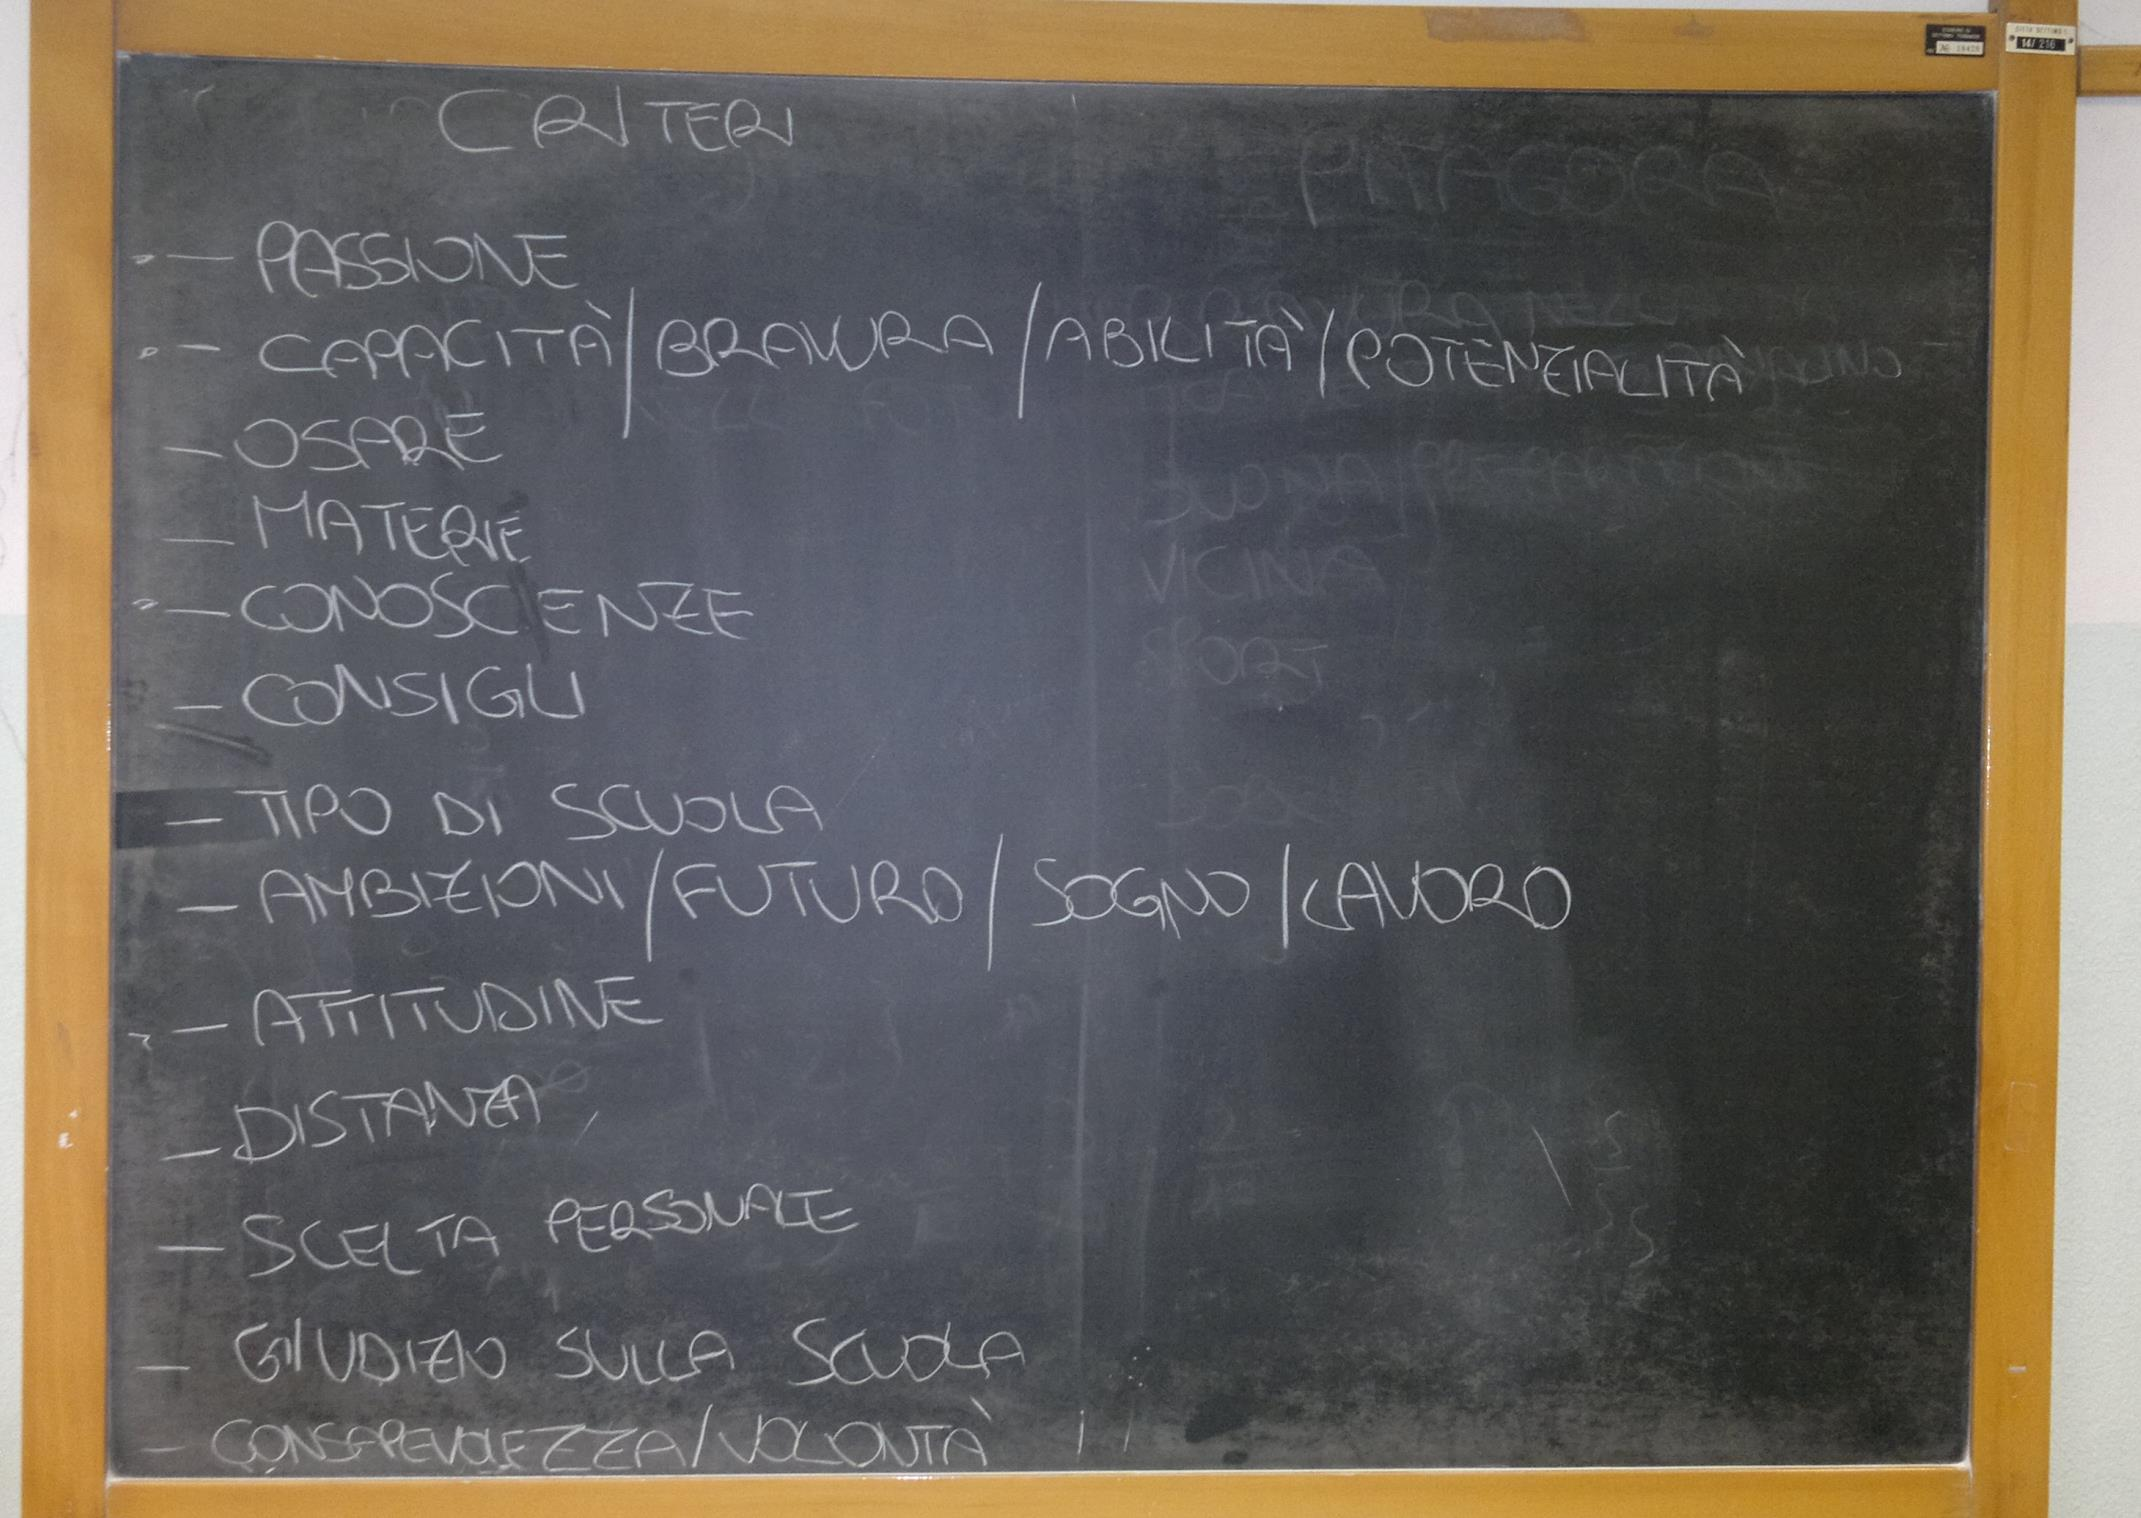 CRITERI
PITAGORA
- PASSIONE
- CAPACITÀ/BRAVURA/ABILITÀ/POTENZIALITÀ
- OSARE
- MATERIE
- CONOSCIENZE
- CONSIGLI
VICINA
SPORT
- TIPO DI SCUOLA
- AMBIZIONI/FUTURO/SOGNO/LAVORO
- ATTITUDINE
- DISTANZA
- SCELTA PERSONALE
- GIUDIZIO SULLA SCUOLA
- CONSAPEVOLEZZA/VOLONTÀ
14/216